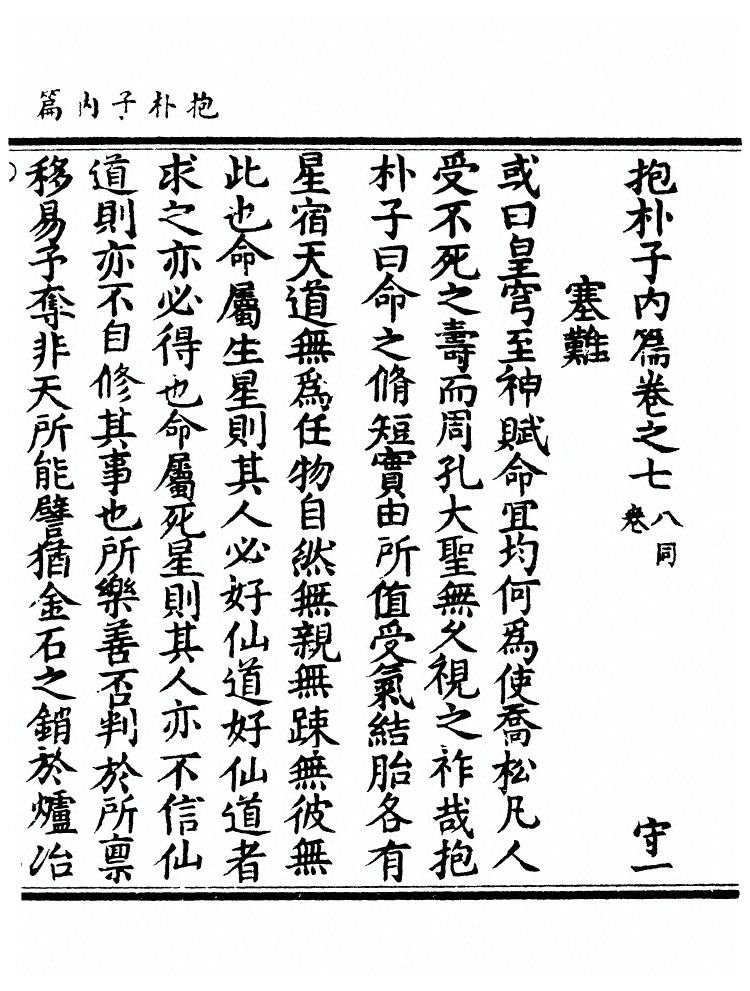 抱朴子内篇
抱朴子内篇卷之七 八同卷 守一
塞難
或曰皇穹至神賦命宜均何爲使喬松凡人
受不死之壽而周孔大聖無久視之祚哉抱
朴子曰命之脩短實由所值受氣結胎各有
星宿天道無爲任物自然無親無踈無彼無
此也命屬生星則其人必好仙道好仙道者
求之亦必得也命屬死星則其人亦不信仙
道則亦不自修其事也所樂善否判於所禀
移易予奪非天所能譬猶金石之銷於爐冶